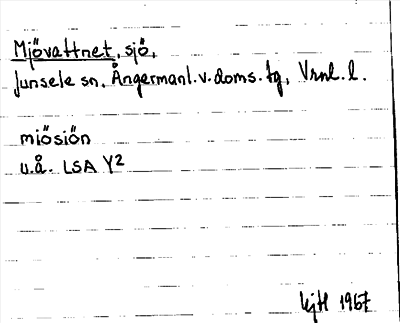 Mjövattnet, sjö,
Junsele sn, Ångermanl. v. doms. tg, Vrnl. l.
miösiön
u.å. LSA Y2
1967